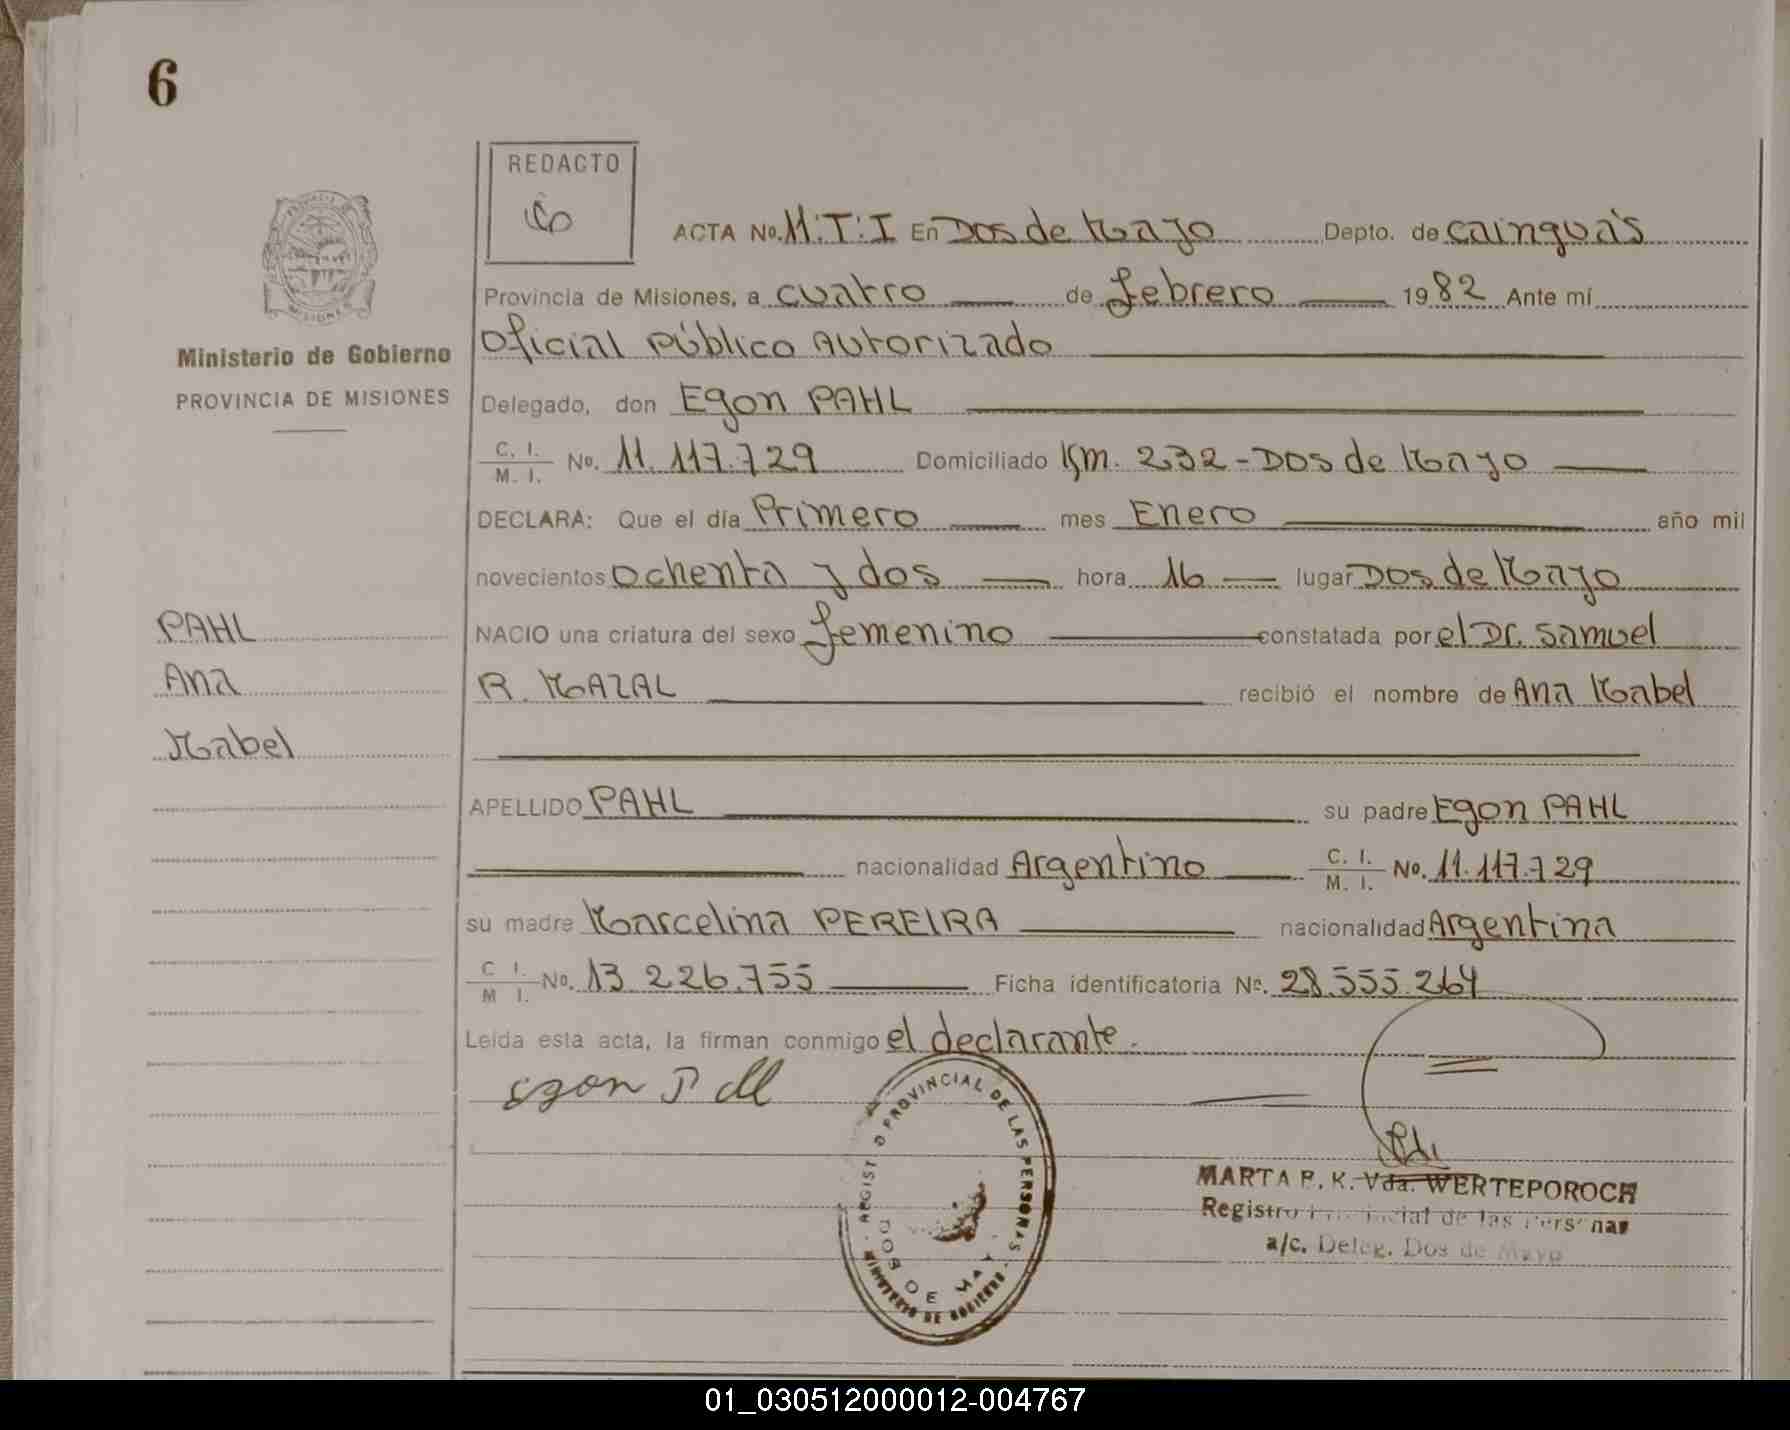 6
REDACTO
ACTA No. M:T:I En Dos de Mayo Depto. de Cainguás
Provincia de Misiones, a cuatro de febrero 1982 Ante mí
Oficial Público Autorizado
Ministerio de Gobierno
PROVINCIA DE MISIONES
Delegado, don Egon PAHL
C. I. / M. I. No. 11.117.729 Domiciliado Km. 232 - Dos de Mayo
DECLARA: Que el día Primero mes Enero año mil
novecientos ochenta y dos hora 16 lugar Dos de Mayo
NACIO una criatura del sexo femenino constatada por el Dr. Samuel
R. MAZAL recibió el nombre de Ana Mabel
PAHL
Ana
Mabel
APELLIDO PAHL su padre Egon PAHL
nacionalidad Argentino C. I. / M. I. No. 11.117.729
su madre Marcelina PEREIRA nacionalidad Argentina
C I. / M I. No. 13.226.755 Ficha identificatoria Nº. 28.555.264
Leída esta acta, la firman conmigo el declarante.
Egon
REGISTRO PROVINCIAL DE LAS PERSONAS
DOS DE MAYO
MINISTERIO DE GOBIERNO
MARTA P. K. Vda. WERTEPOROCH
Registro Provincial de las Personas
a/c. Deleg. Dos de Mayo
01_030512000012-004767